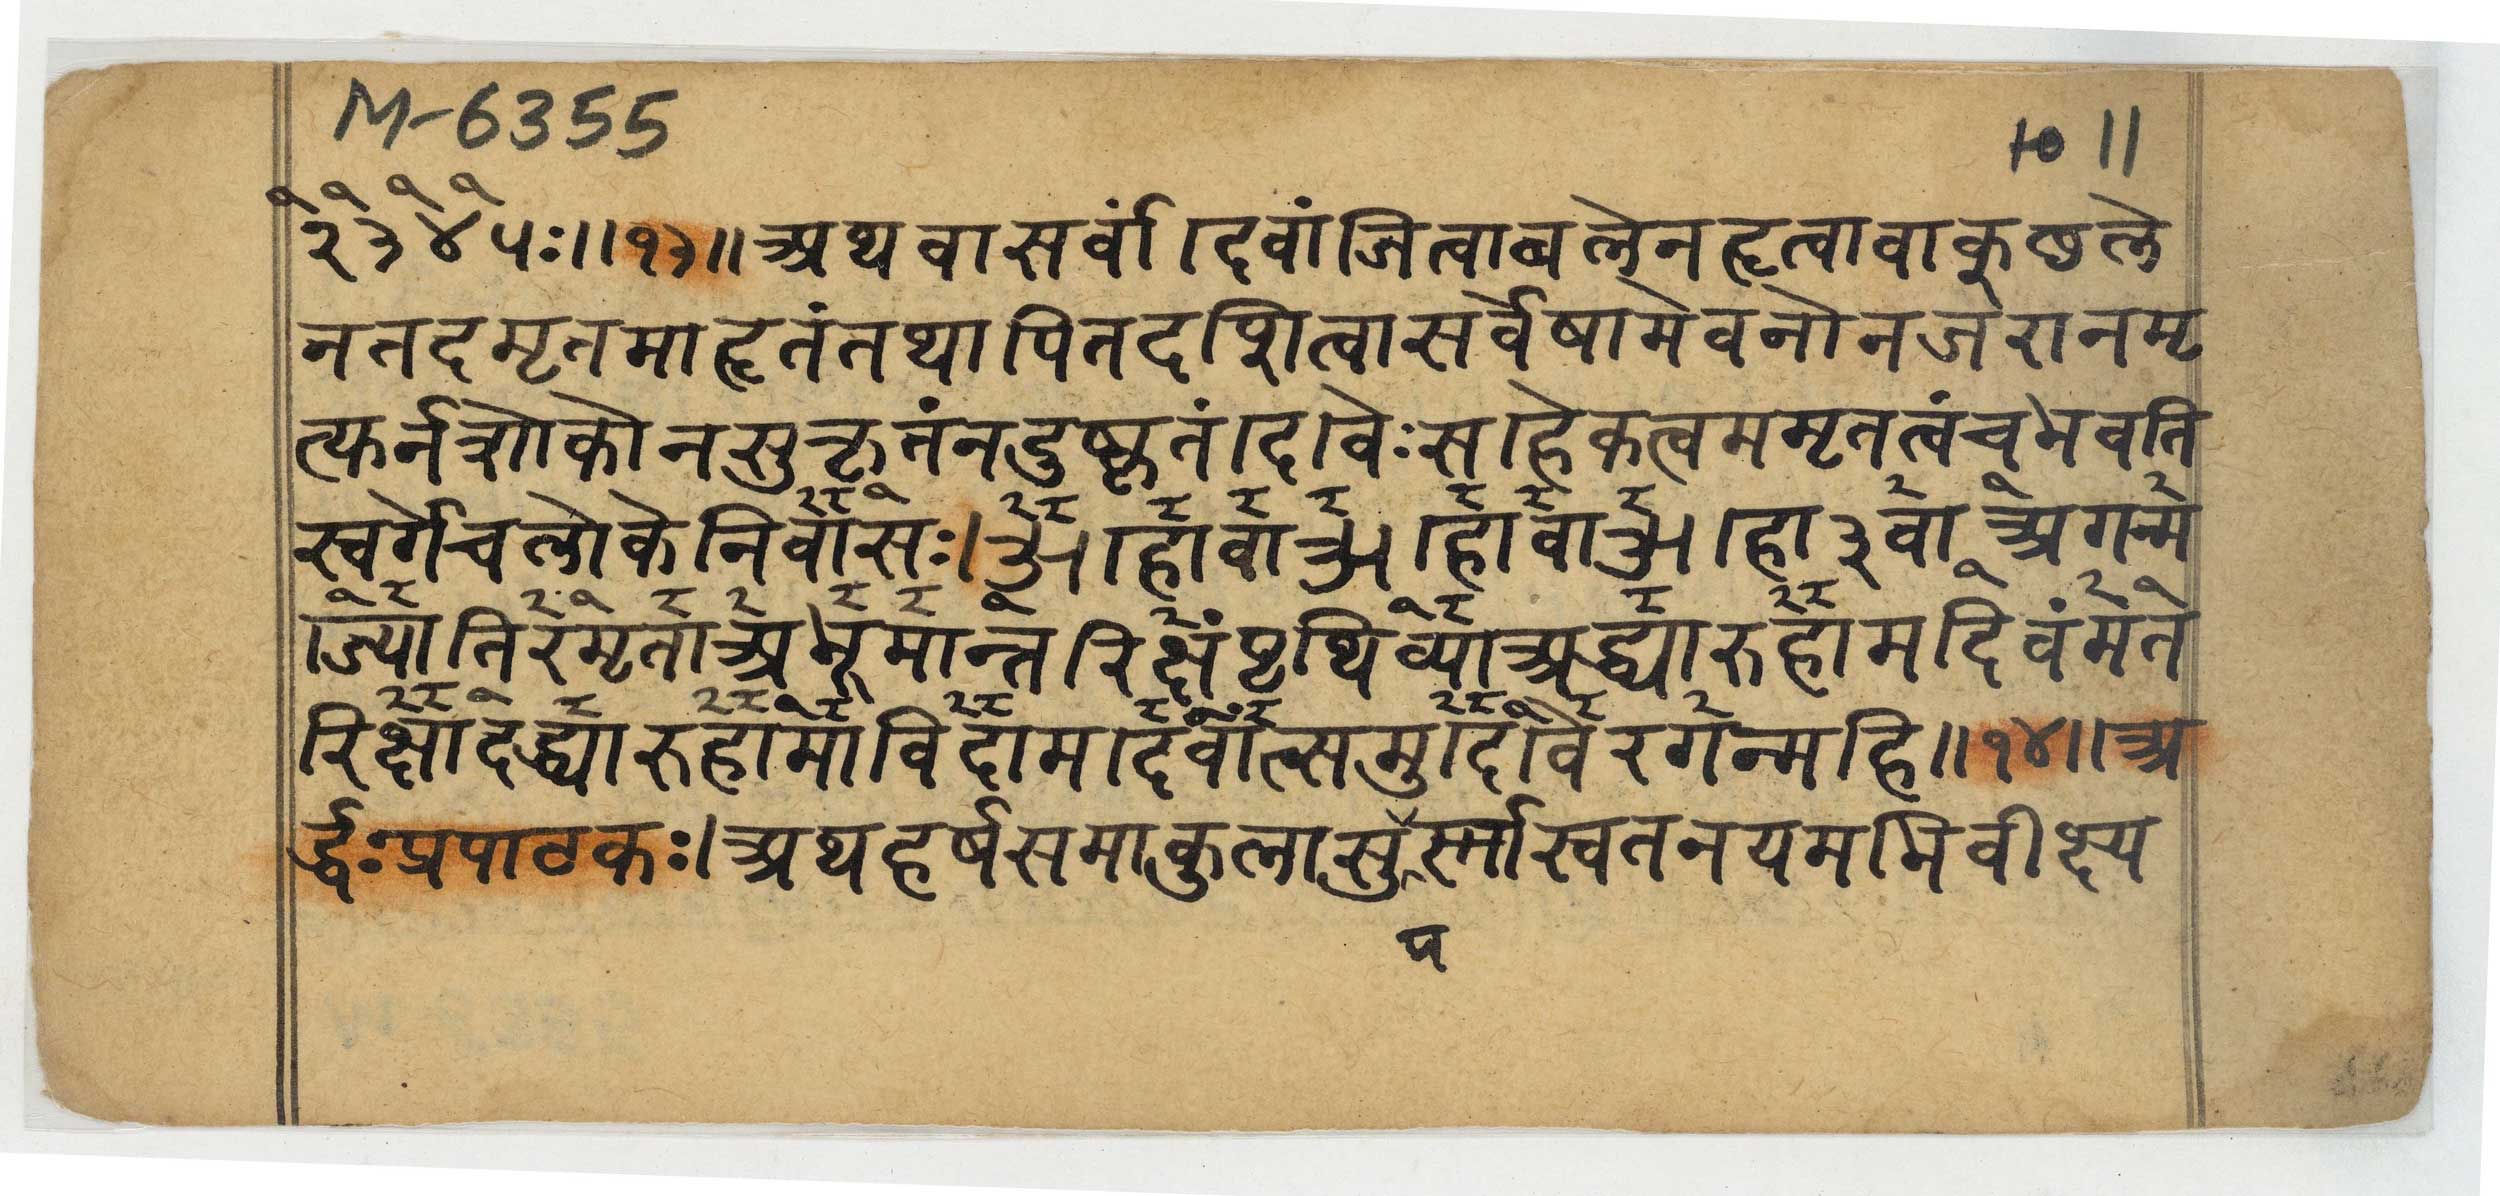 M-6355
11
२३४५ः॥१३॥अथवासर्वां।दवांजित्वाबलेनहृत्वावाकुछले
नतदमृतमाहृतंतथापितदशित्वासर्वेषामेवनोनजरानमृ
त्युर्नशोकोनसुकृतंनदुष्कृतं।द।वेःस।हेकत्वममृतत्वंचभवति
स्वर्गेचलोकेनिर्वासः।ॐ।हावाॐ।हावाॐ।हा३वाअगन्म
।ज्योतिरमृताअभूमान्तरिक्षंपृथिव्याअद्ध्यारुहामदिवंमंत
रिक्षादद्ध्यारुहामाविदाम।दवांत्समु।दवेरगन्महि॥१४॥अ
र्द्धःप्रपाठकः।अथहर्षसमाकुलासुर्स्मास्वतनयमभिवीक्ष्य
प